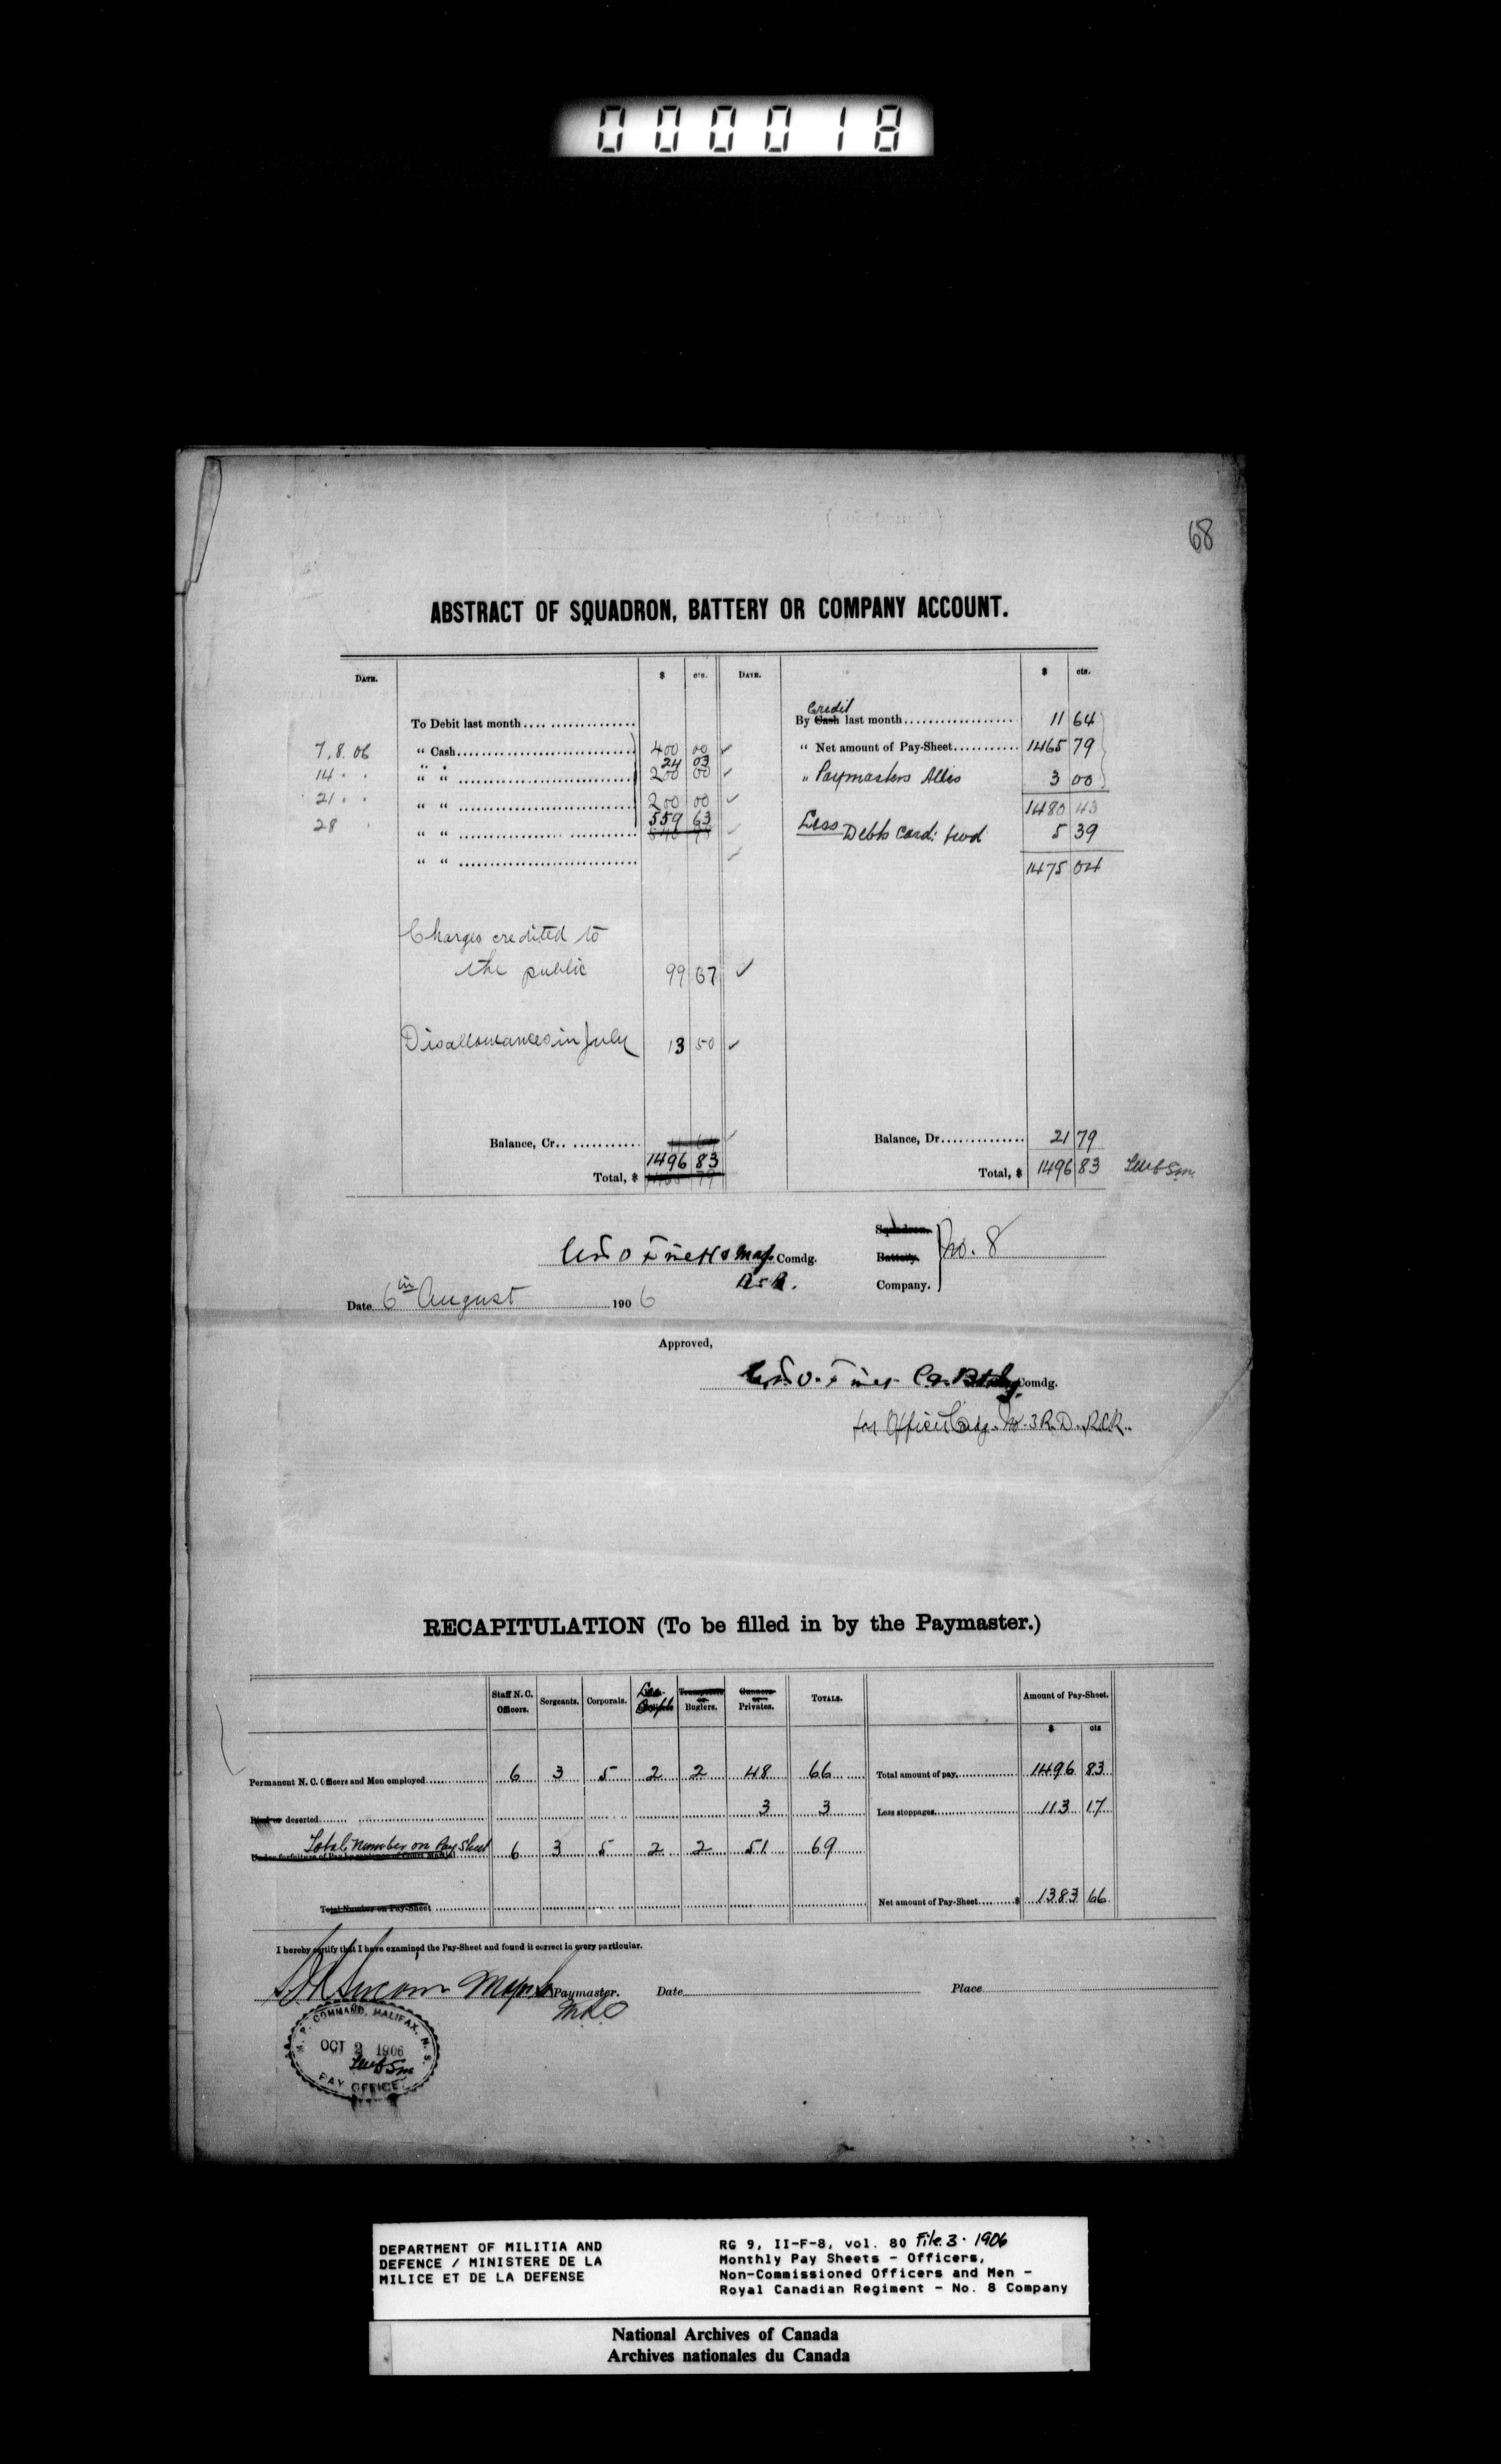 000018
68
ABSTRACT OF SQUADRON, BATTERY OR COMPANY ACCOUNT.
DATE. $ cts. DATE. $ cts.
To Debit last month
By Cash Credit last month 11 64
7.8.06 “ Cash 400 00
“ Net amount of Pay-Sheet 1465 79
24 03
14 “ “ 200 00
„ Paymasters Allce 3 00
21 “ “ 200 00
1480 43
28 “ “ 559 63
Less Debts card: fwd 5 39
“ “
1475 04
Charges credited to
the public 99 67
Disallowances in July 13 50
Balance, Cr.
Balance, Dr. 21 79
1496 83
Total, $
Total, $ 1496 83
Squadron.
Battery. No. 8
Company.
Maj. Comdg.
Date 6th August 1906
Approved,
Comdg.
for Officer Comdg. No. 3 R.D., R.C.R.
RECAPITULATION (To be filled in by the Paymaster.)
Staff N. C. Officers. Sergeants. Corporals. Trumpeters or Buglers. Gunners or Privates. TOTALS. Amount of Pay-Sheet.
$ cts
Permanent N. C. Officers and Men employed 6 3 5 2 2 48 66 Total amount of pay 1496 83
Died or deserted 3 3 Less stoppages 113 17
Total Number on Pay Sheet
Under forfeiture of Pay by sentence of Court Martial 6 3 5 2 2 51 69
Total Number on Pay-Sheet Net amount of Pay-Sheet $ 1383 66
I hereby certify that I have examined the Pay-Sheet and found it correct in every particular.
Major Paymaster. Date Place
M. P. COMMAND, HALIFAX, N. S.
OCT 2 1906
PAY OFFICE
DEPARTMENT OF MILITIA AND
DEFENCE / MINISTERE DE LA
MILICE ET DE LA DEFENSE
RG 9, II-F-8, vol. 80 File 3. 1906
Monthly Pay Sheets - Officers,
Non-Commissioned Officers and Men -
Royal Canadian Regiment - No. 8 Company
National Archives of Canada
Archives nationales du Canada